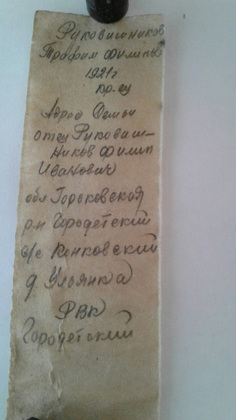 Руковишников
Трофим Филипов
1921г
кр-ец
Адрес Семьи
отец Руковиш-
ников Филип
Иванович
обл Горьковская
р-н Городетский
с/с Конковский
д. Ульянка
РВК
Городетский